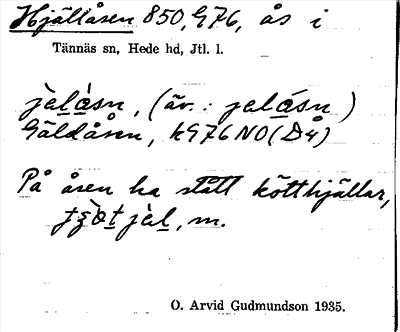 Hjällåsen 850, G76, ås i
Tännäs sn, Hede hd, Jtl. l.
jèlåsn, (äv.: jelåsn)
Gäldåsen, kG76NO(D4)
På åsen ha stått kötthjällar,
jèl, m.
O. Arvid Gudmundson 1935.